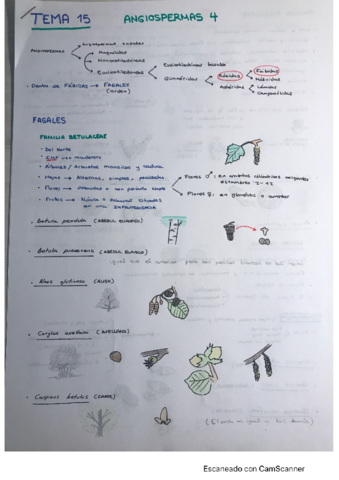 TEMA 15 ANGIOSPERMAS 4
Angiospermas
Angiospermas basales
Magnólidas
Monocotiledóneas
Eucotiledóneas
Eucotiledóneas basales
Gunnéridas
Rósidas
Astéridas
Fábidas
Málvidas
Lámidas
Campanúlidas
· Dentro de FÁBIDAS → FAGALES
(orden)
FAGALES
FAMILIA BETULACEAE
· Del Norte
· Árboles / arbustos monoicos y
· Hojas → Alternas, simples,
· Flores → o con perianto
· Frutos → Núcula o sámaras situadas
en una INFRUTESCENCIA
Flores ♂: en amentos cilíndricos colgantes
estambres 2-12
Flores ♀: en glomérulos o amentos
· Betula pendula (ABEDUL EUROPEO)
· Betula pubescens (ABEDUL BLANCO)
· Alnus glutinosa (ALISO)
· Corylus avellana (AVELLANO)
· Carpinus betulus (CARPE)
Escaneado con CamScanner